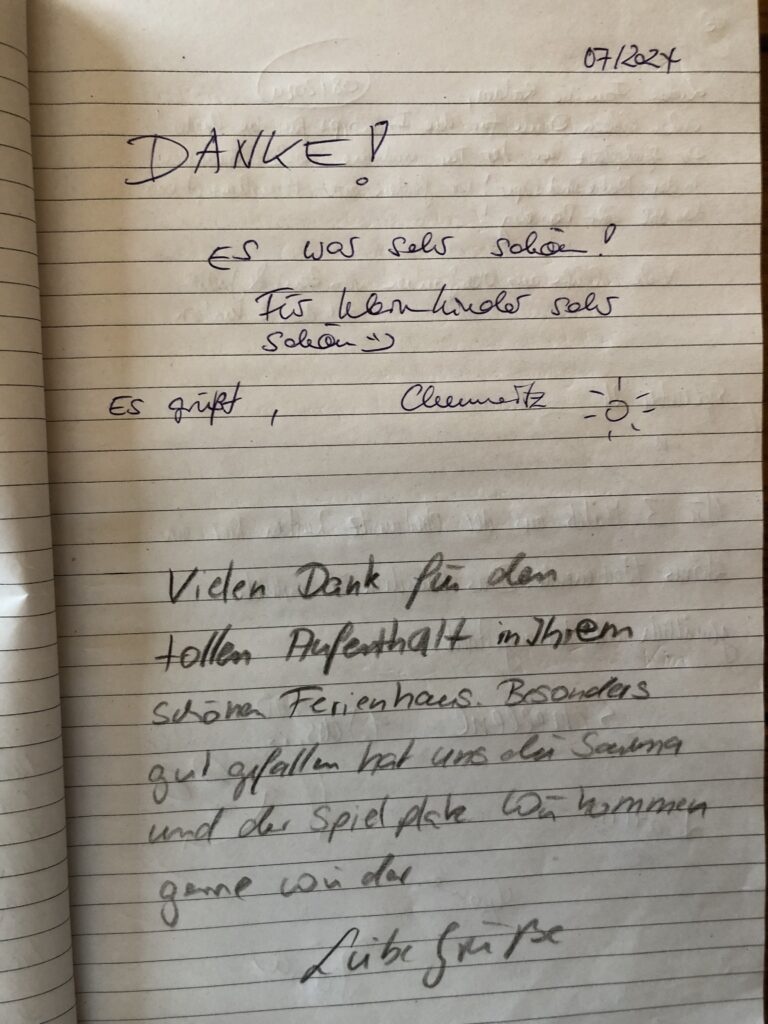 07/2024
DANKE!
ES war sehr schön!
Für Kleinkinder sehr
schön :)
ES grüßt, Chemnitz
Vielen Dank für den
tollen Aufenthalt in Ihrem
schönen Ferienhaus. Besonders
gut gefallen hat uns die Sauna
und der Spielplatz Wir kommen
gerne wieder
Liebe Grüße